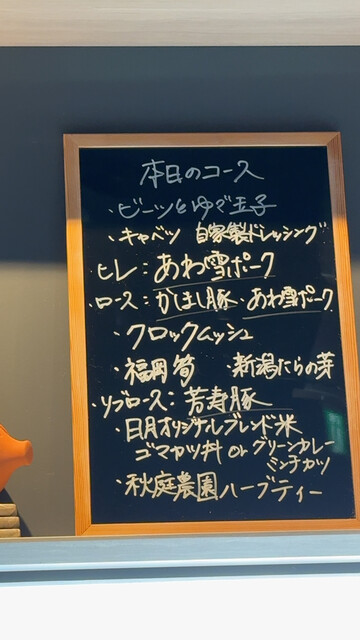 本日のコース
・ビーツとゆで玉子
・キャベツ 自家製ドレッシング
ヒレ：あわ雪ポーク
・ロース：かほし豚・あわ雪ポーク
・クロックムッシュ
・福岡筍 ・新潟たらの芽
・リブロース：芳寿豚
・日月オリジナルブレンド米
ゴマカツ丼 or グリーンカレー
ミンチカツ
・秋庭農園ハーブティー